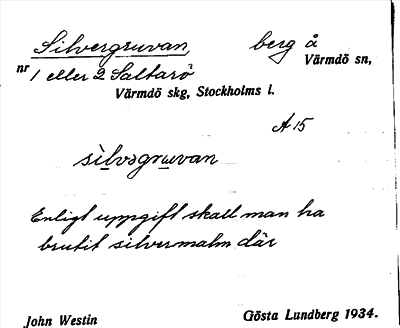 Silvergruvan, berg å
Värmdö sn,
nr 1 eller 2 Saltarö
Värmdö skg, Stockholms l.
A 15
silvərgruvan
Enligt uppgift skall man ha
brutit silvermalm där
John Westin Gösta Lundberg 1934.